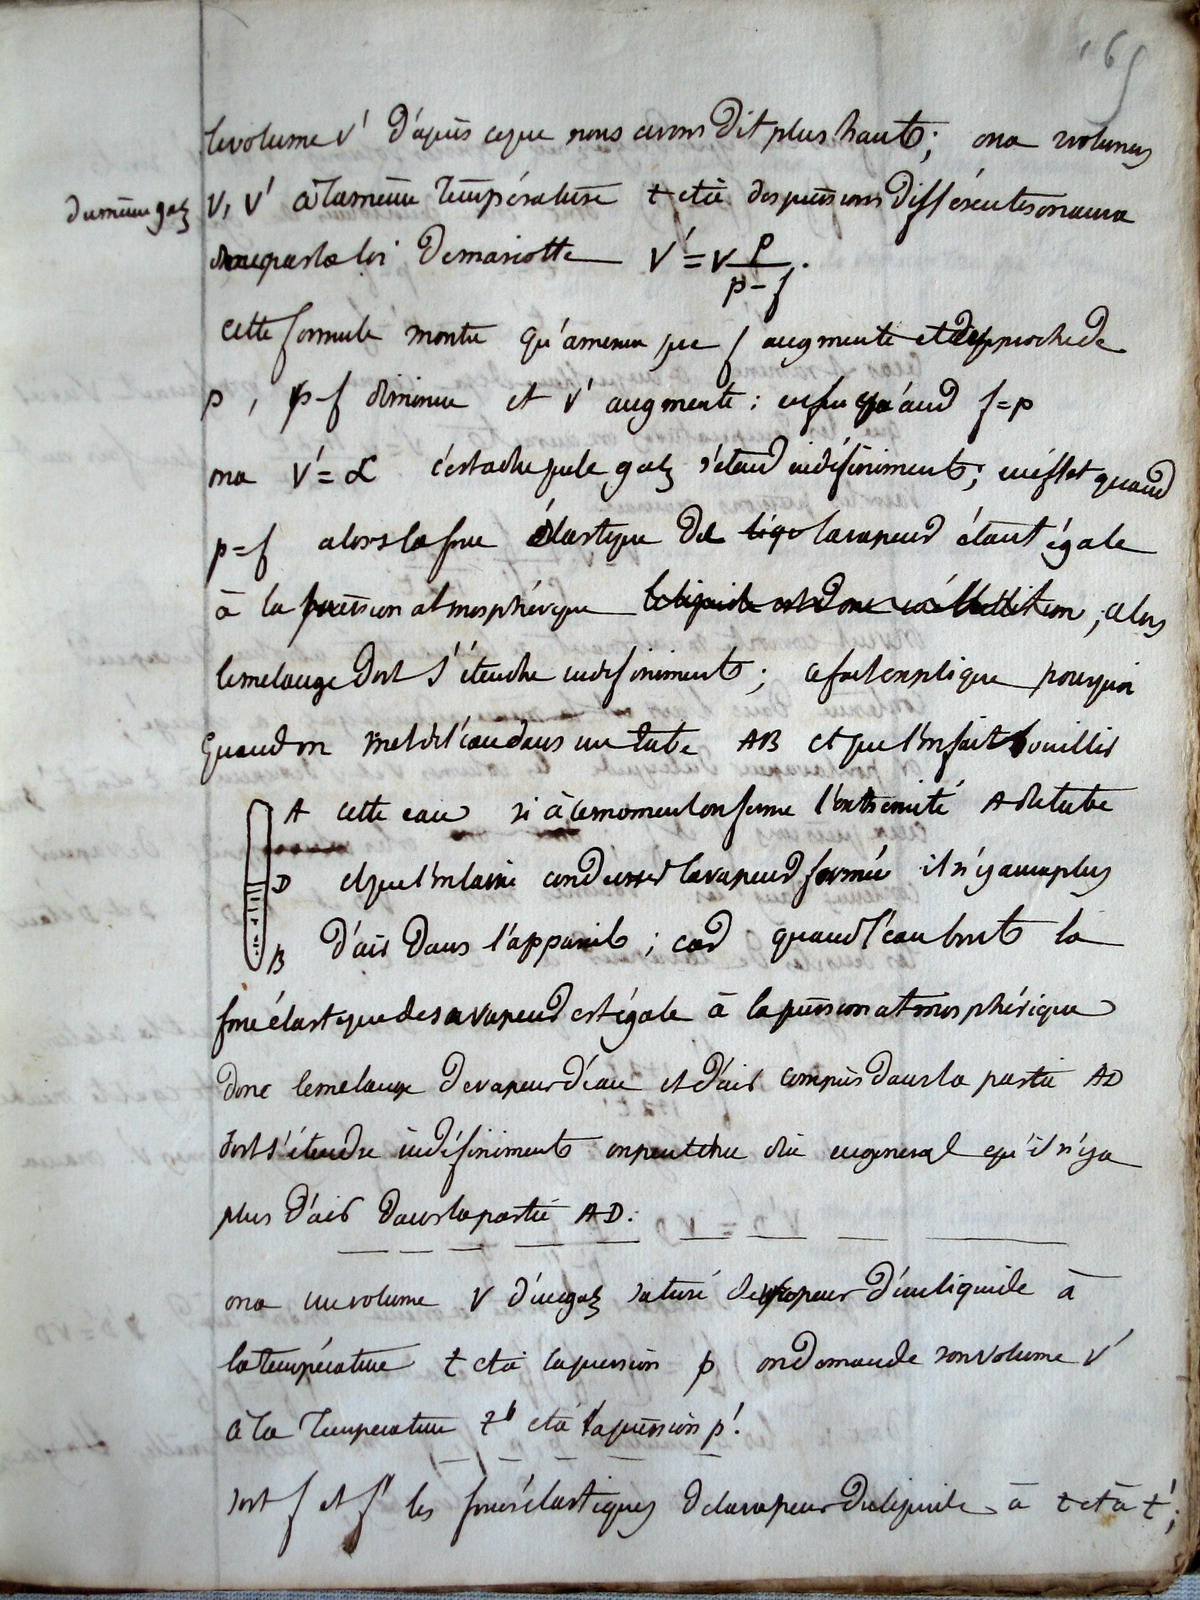 165
le volume v' d'après ce que nous avons dit plus haut ; on a 2 volumes
du même gaz v, v' à la même température t et à des pressions différentes on aura
donc par la loi de mariotte v' = v p / p-f .
cette formule montre qu'à mesure que f augmente et s'approche de
p , p-f diminue et v' augmente ; enfin quand f=p
on a v' = ∝ c'est à dire que le gaz s'étend indéfiniment ; en effet quand
p=f alors la force élastique de la vapeur étant égale
à la pression atmosphérique le liquide est donc en ébullition ; alors
le mélange doit s'étendre indéfiniment ; ce fait explique pourquoi
quand on met de l'eau dans un tube AB et que l'on fait bouillir
A cette eau si à ce moment on ferme l'extrémité A du tube
D et que l'on laisse condenser la vapeur formée il n'y aura plus
B d'air dans l'appareil ; car quand l'eau bout la
force élastique de sa vapeur est égale à la pression atmosphérique
donc le mélange de vapeur d'eau et d'air compris dans la partie AD
doit s'étendre indéfiniment on peut donc dire en general qu'il n'y a
plus d'air dans la partie AD.
on a un volume v d'un gaz saturé de vapeur d'un liquide à
la température t et à la pression p on demande son volume v'
à la température t' et à la pression p'.
soit f et f' les forces élastiques de la vapeur du liquide à t et à t' ;